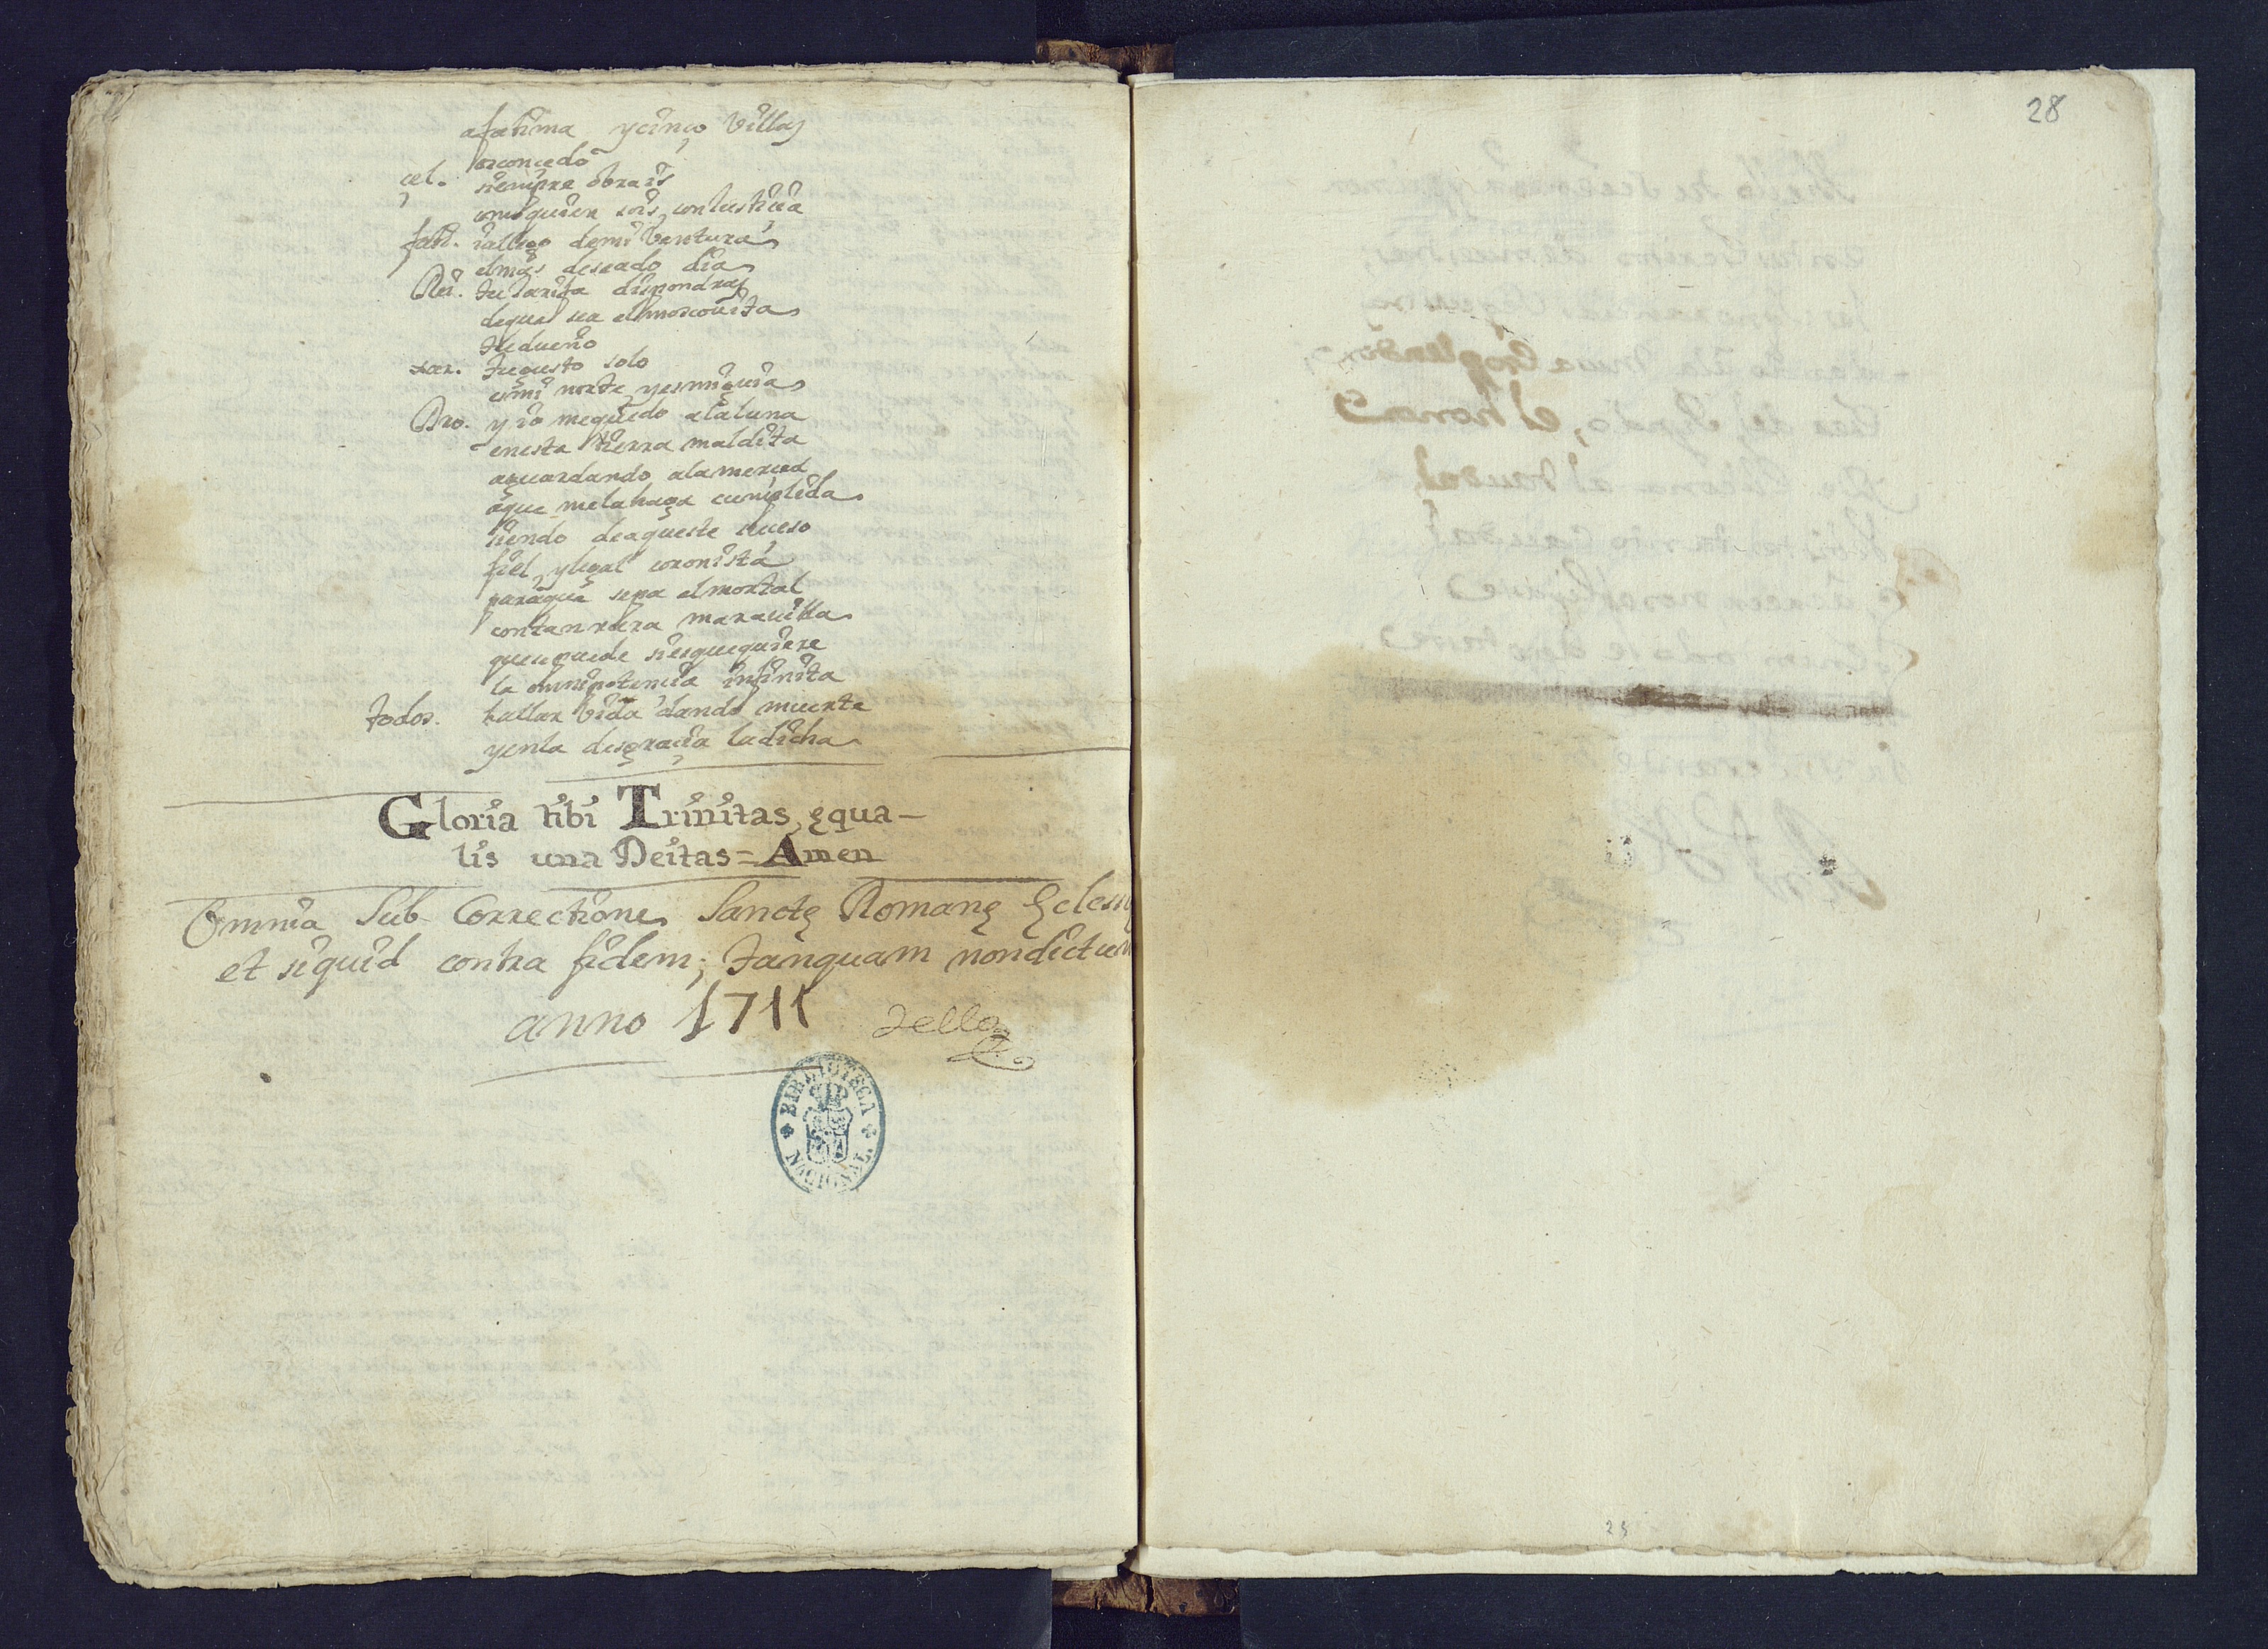 afatima ycinço Villas
osconcedo
çel. siempre obrais
como quien sois con lusticia
fati. iallego demi Ventura
elmas deseado dia
Rei. tu Jarifa dispondras
deque sea elmoscouita
tu dueño
xar. tugusto solo
esmi norte yesmiguia
Bro. y io mequedo alaluna
enesta tierra maldita
aguardando ala merced
aque melahaga cumplida
siendo deaqueste suceso
fiel ylegal coronista
paraque sepa elmortal
contan rara marauilla
que puede siesquequiere
la omnipotencia infinita
todos. hallar Vida dando muerte
yenla desgracia ladicha
Gloria tibi Trinitas ęqua-
lis una Deitas = Amen
Omnia Sub Correctione Sanctę Romanę Ęclesię
et siquid contra fidem; tanquam nondictum
anno 1711
BIBLIOTECA NACIONAL
28